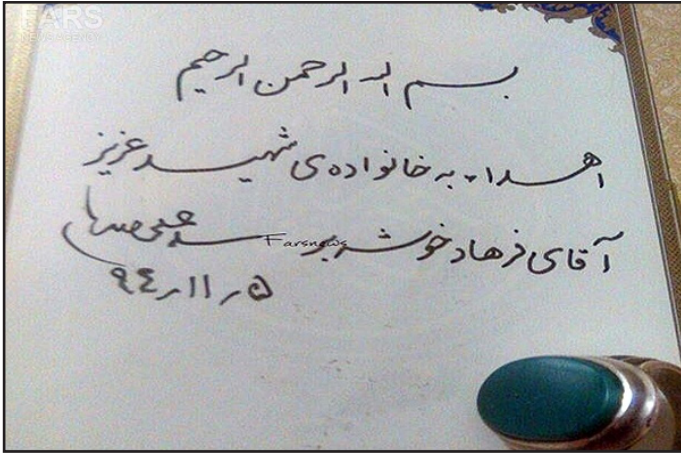 FARS
NEWS AGENCY
بسم الله الرحمن الرحیم
اهداء به خانواده‌ی شهید عزیز
آقای فرهاد خوشه بر
Farsnews
۹۴٫۱۱٫۵